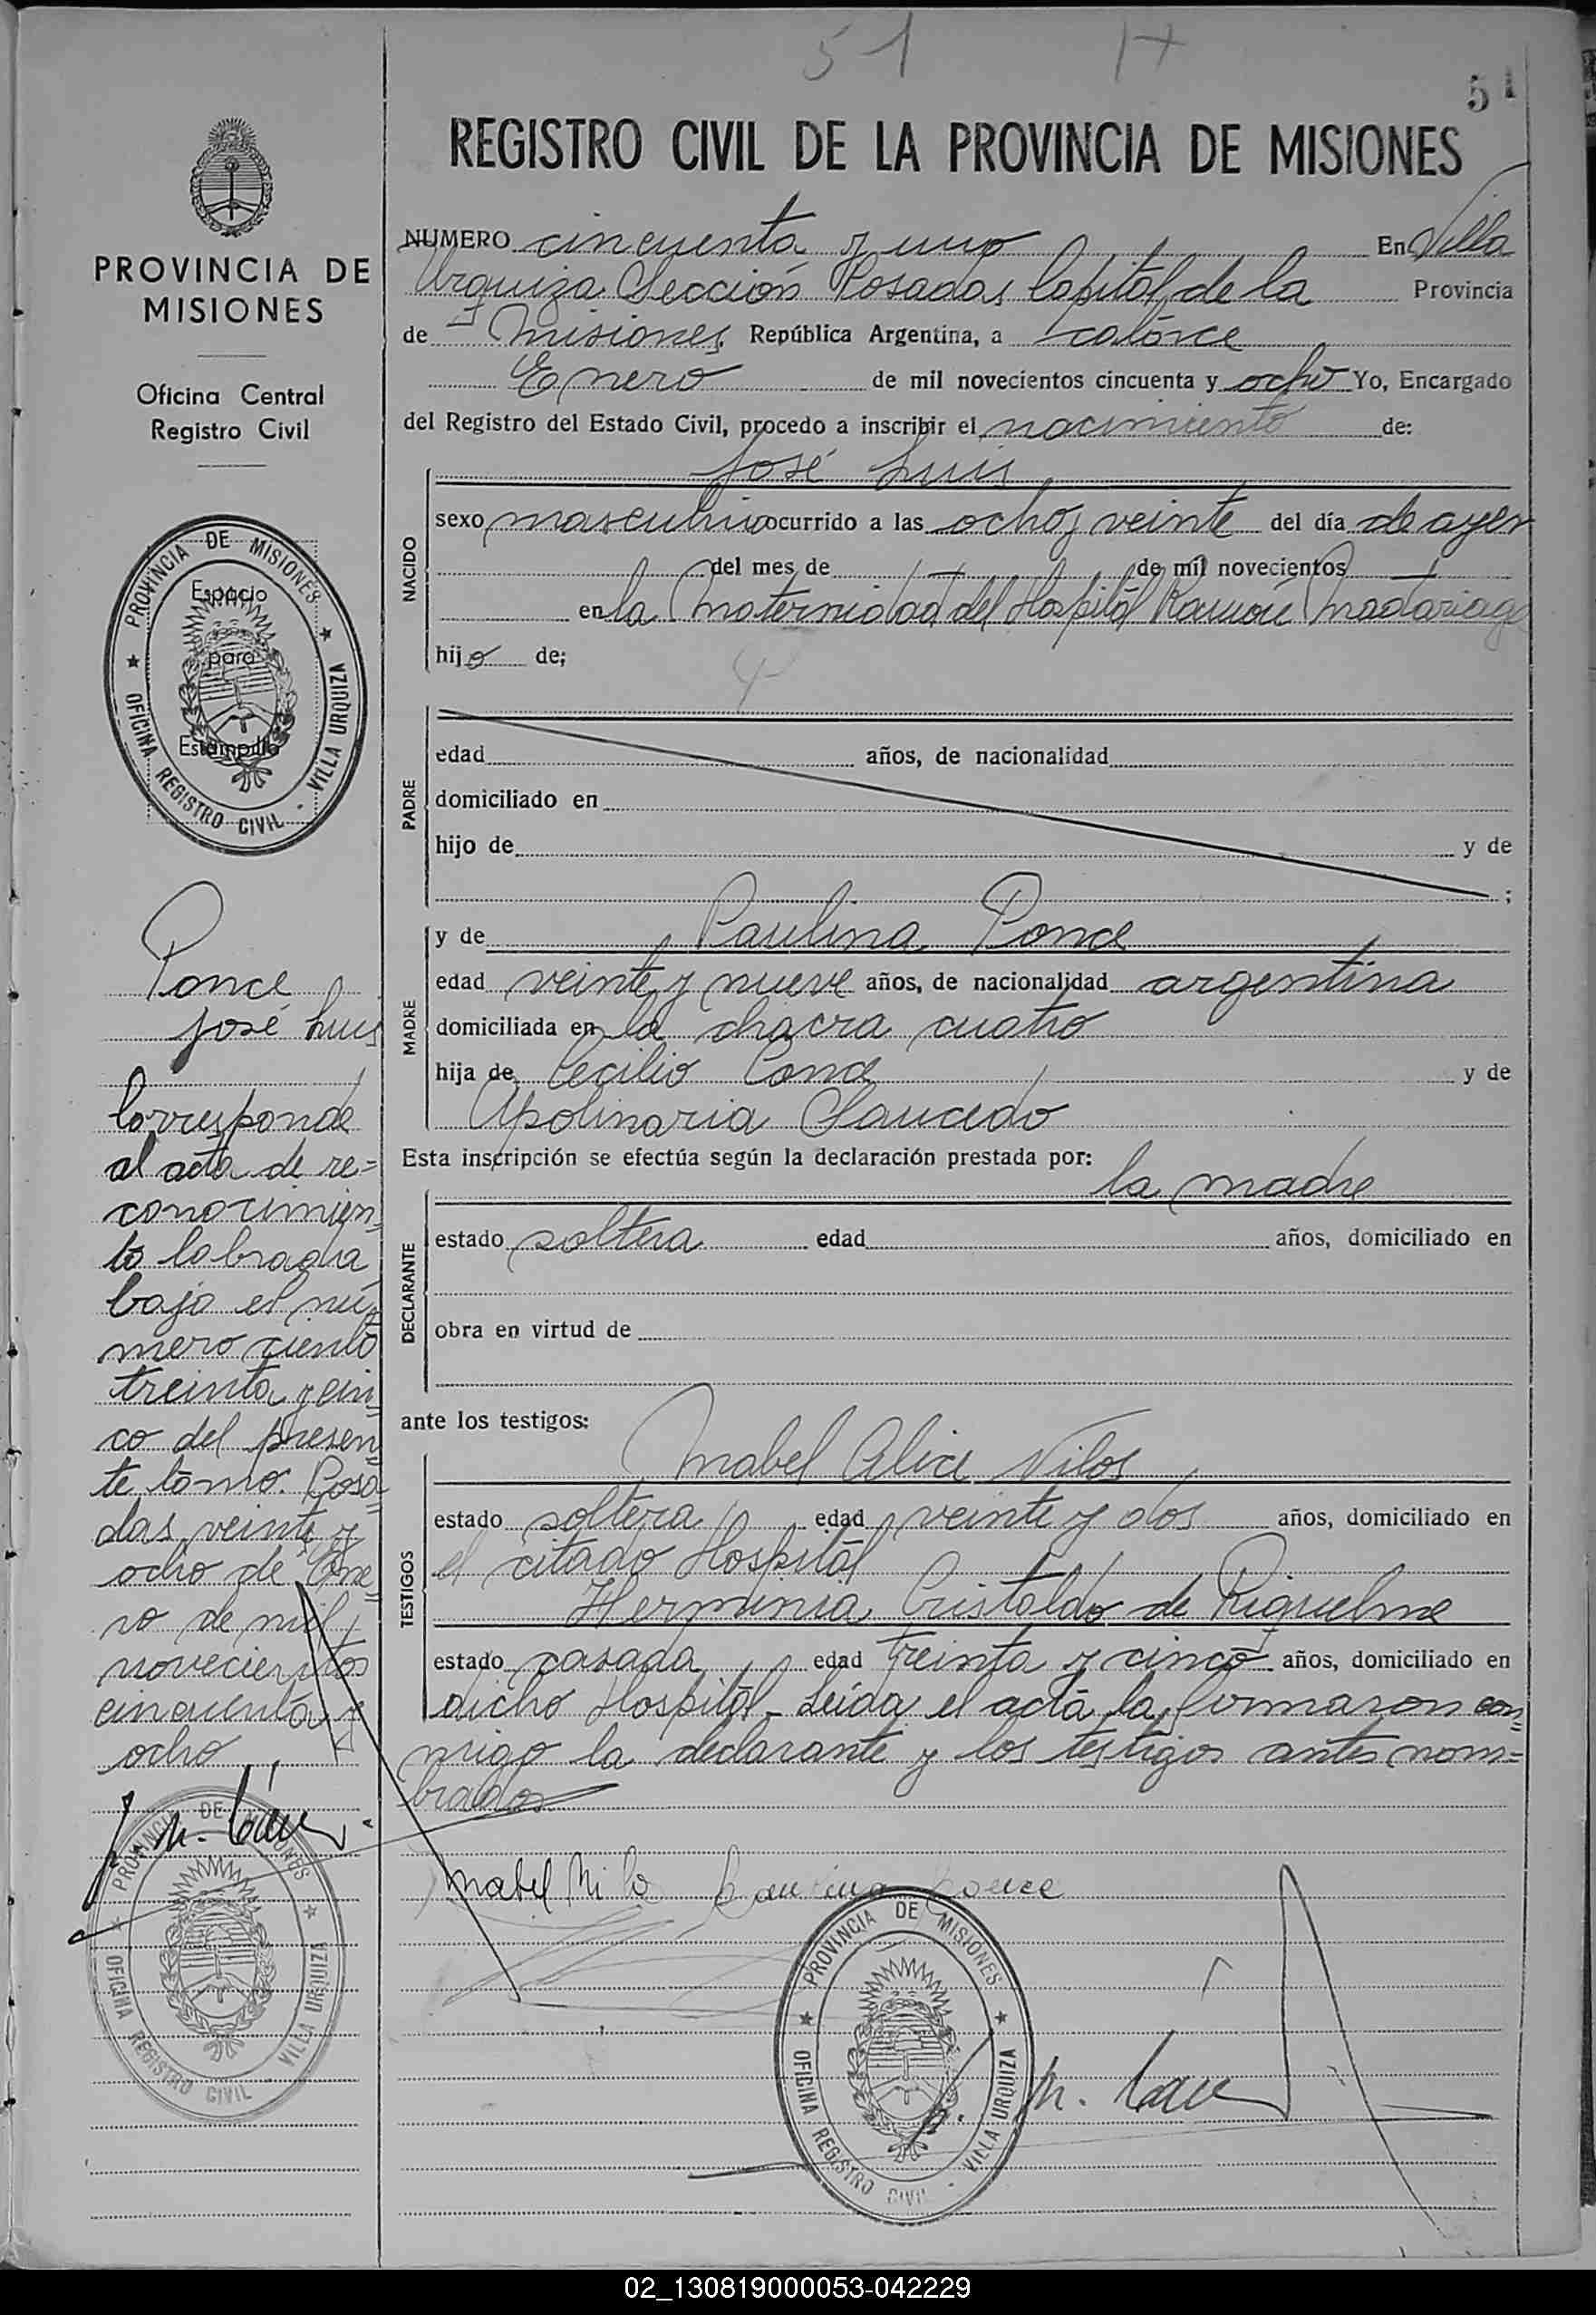 51 17
51
REGISTRO CIVIL DE LA PROVINCIA DE MISIONES
NUMERO cincuenta y uno En Villa
Urquiza Sección Posadas Capital de la Provincia
de Misiones República Argentina, a catorce
Enero de mil novecientos cincuenta y ocho Yo, Encargado
del Registro del Estado Civil, procedo a inscribir el nacimiento de:
José Luis
NACIDO
sexo masculino ocurrido a las ocho y veinte del día de ayer
del mes de de mil novecientos
en la Maternidad del Hospital Ramón Madariaga
hijo de;
PADRE
edad años, de nacionalidad
domiciliado en
hijo de y de
;
MADRE
y de Paulina Ponce
edad veinte y nueve años, de nacionalidad argentina
domiciliada en la chacra cuatro
hija de Cecilio Ponce y de
Apolinaria Saucedo
Esta inscripción se efectúa según la declaración prestada por:
la madre
DECLARANTE
estado soltera edad años, domiciliado en
obra en virtud de
ante los testigos:
Mabel Alice Vilos
TESTIGOS
estado soltera edad veinte y dos años, domiciliado en
el citado Hospital
Herminia Cristaldo de Riquelme
estado casada edad treinta y cinco años, domiciliado en
dicho Hospital - Leída el acta la firmaron con=
migo la declarante y los testigos antes nom=
brados
Paulina Ponce
PROVINCIA DE MISIONES
OFICINA REGISTRO CIVIL - VILLA URQUIZA
PROVINCIA DE
MISIONES
Oficina Central
Registro Civil
PROVINCIA DE MISIONES
OFICINA REGISTRO CIVIL - VILLA URQUIZA
Espacio
para
Estampilla
Ponce
José Luis
Corresponde
al acta de re=
conocimien=
to labrada
bajo el nú=
mero ciento
treinta y cin=
co del presen=
te tomo. Posa=
das veinte y
ocho de Ene=
ro de mil
novecientos
cincuenta y
ocho
PROVINCIA DE MISIONES
OFICINA REGISTRO CIVIL - VILLA URQUIZA
02_130819000053-042229